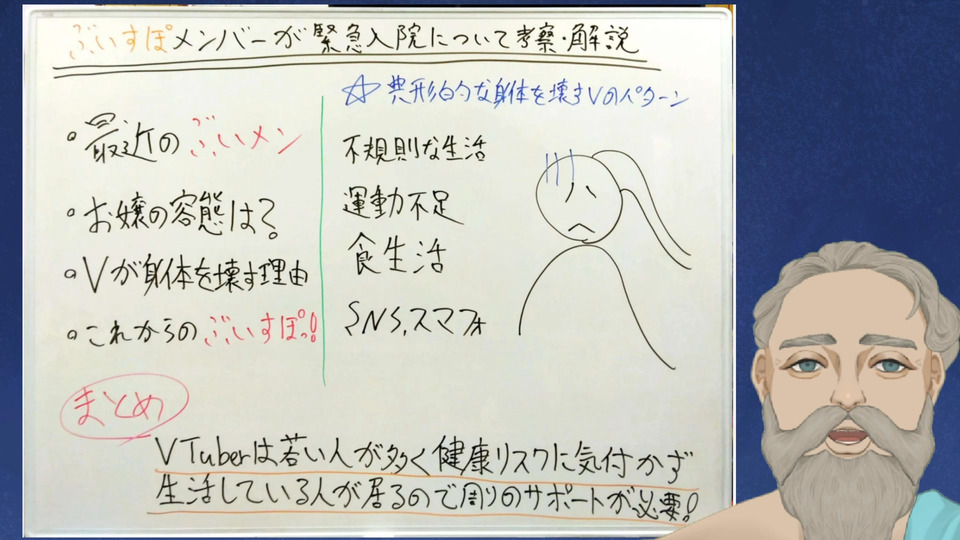 ぶいすぽメンバーが緊急入院について考察・解説
・最近のぶいメン
・お嬢の容態は?
・Vが身体を壊す理由
・これからのぶいすぽっ!
☆典形的な身体を壊すVのパターン
不規則な生活
運動不足
食生活
SNS,スマフォ
まとめ
VTuberは若い人が多く健康リスクに気付かず
生活している人が居るので周りのサポートが必要!